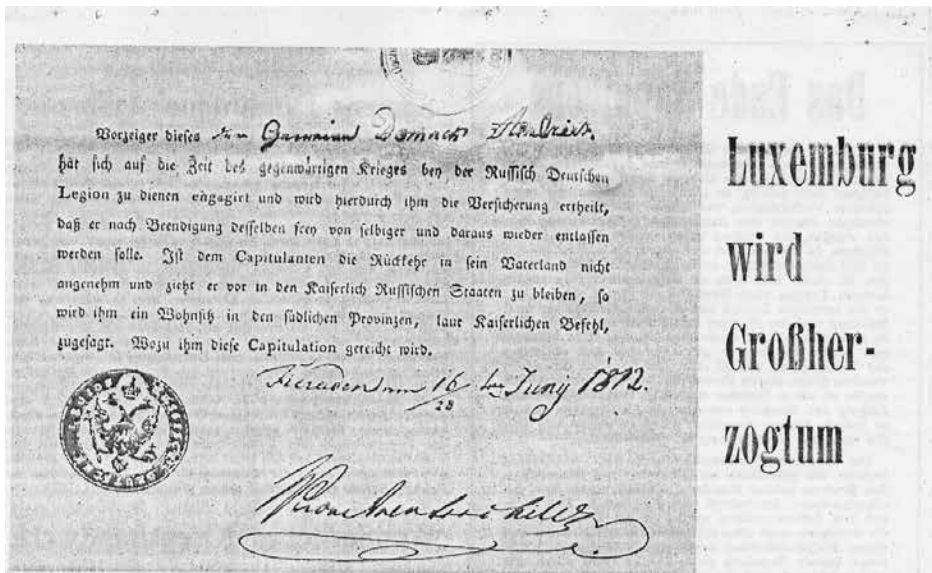 Vorzeiger dieses
hat sich auf die Zeit des gegenwärtigen Krieges bey der Russisch Deutschen
Legion zu dienen engagirt und wird hierdurch ihm die Versicherung ertheilt,
daß er nach Beendigung desselben frey von selbiger und daraus wieder entlassen
werden solle. Ist dem Capitulanten die Rückkehr in sein Vaterland nicht
angenehm und zieht er vor in den Kaiserlich Russischen Staaten zu bleiben, so
wird ihm ein Wohnsitz in den südlichen Provinzen, laut Kaiserlichen Befehl,
zugesagt. Wozu ihm diese Capitulation gereicht wird.
16 Juny 1812.
28
Luxemburg
wird
Großher-
zogtum